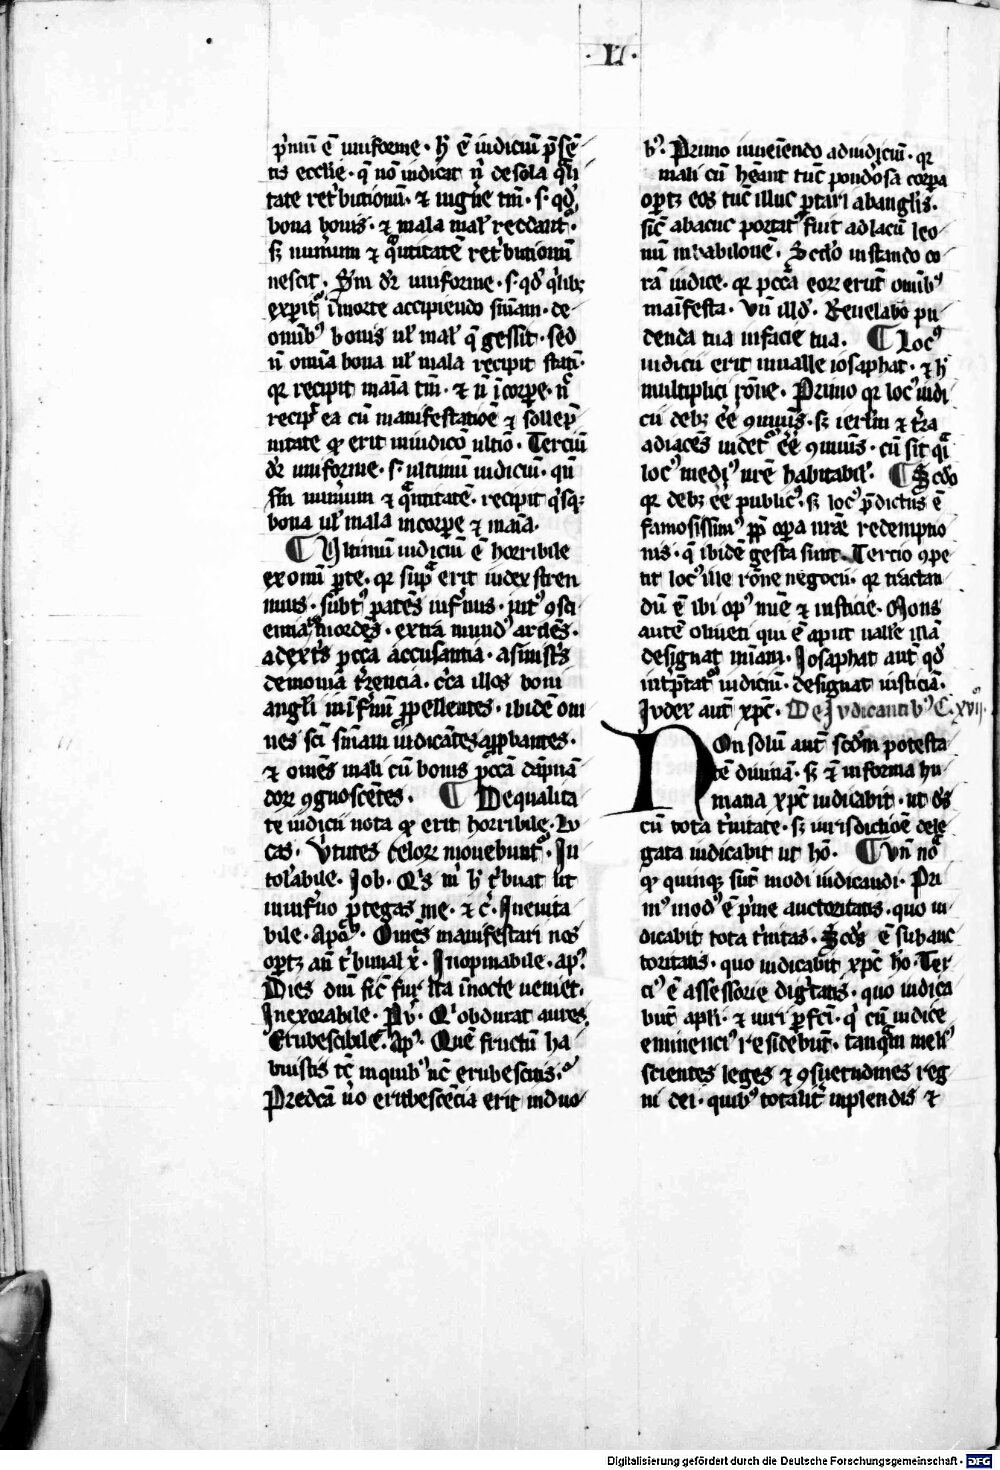 · VI ·
p̄miū ē uniforme · h̄ ē iudiciū p̄sē
tis eccl̄ie · q̄ nō iudicat n̄ de sola q̄li
tate ret̄butionū · ⁊ in gn̄e tm̄ · s · qd̓
bona bonis · ⁊ mala mal̓ reddant᷑ ·
sꝫ num̄um ⁊ q̄ntitatē ret̄butionū
nescit · Sm̄ dr̄ uniforme · s · qd̓ q̓libꝫ
exꝑit᷑ ī morte accipiendo sn̄iam · de
omībꝰ bonis ul̓ mal̓ q̄ gessit · sed
n̄ omīa bona ul̓ mala recipit statī ·
qꝛ recipit ī aīa tm̄ · ⁊ n̄ ī corꝑe · n̄
recipit ea cū manifestatiōe ⁊ sollēp
nitate q̄ erit in iudicō ultīo · Terciū
dr̄ uniforme · s · ultimū iudiciū · qn̄
sm̄ num̄um ⁊ q̄ntitatē · recipit q̓sqꝫ
bona ul̓ mala in corꝑe ⁊ in aīa ·
¶ Vltimū iudiciū ē horribile
ex omī ꝑte · qꝛ sup̄ erit iudex stren
nuus · subtꝰ patēs infernus · intꝰ ꝯsci
encia mordēs · extra mundꝰ ardēs ·
a dext̄s pc̄cā accusantia · a sinist̄s
demonia t̄rencia · c̄ca illos boni
angli in īf̄nū ꝓpellentes · ibidē om
nes sc̄i sn̄iam iudicātes apꝓbantes ·
⁊ om̄es mali cū bonis pc̄cā dāpna
toꝝ ꝯgnoscētes · ¶ De qualita
te iudicii nota q̄ erit horribile · Lu
cas · V̄tutes celoꝝ mouebunt᷑ · In
tolabile · Job · Q̓s m̄ h̄ t̄buat ut
in inf̄no ꝓtegas me · ⁊ c̄ · Ineuita
bile · Apl̓s · Om̄es manifestari nos
oportꝫ an̄ t̄bunal xp̄i · Inopinabile · apꝰ
Dies dn̄i sic̄ fur ita ī nocte ueniet ·
Inexorabile · Pv̄ · Q̓ obdurat aures
Erubescibile · apꝰ · Quē fructū ha
buistis tc̄ in quibꝰ nc̄ erubescitis ·
Predc̄a ūo erubescēcia erit in duo
bꝰ · Primo in ueniendo ad iudiciū · qꝛ
mali cū hēant tūc pondōsa corꝑa
oportꝫ eos tūc illuc ꝑtari ab anglis ·
sic̄ abacuc portatꝰ fuit ad lacū leo
nū in babilonē · Scd̓o in stando co
rā iudice · qꝛ pc̄cā eoꝝ erūt omībꝰ
manīfesta · Vn̄ illd̓ · Reuelabo pu
denda tua in facie tua · ¶ Locꝰ
iudicii erit in ualle iosaphat · ⁊ h̄
multiplici rōne · Primo qꝛ locꝰ iudi
cii debꝫ ēe ꝯmunis · sꝫ ierl̄m ⁊ t̄ra
adiacēs uidet᷑ ēe ꝯmunis · cū sit q̄i
locꝰ mediꝰ nr̄e habitabil̓ · ¶ Scd̓o
qꝛ debꝫ ēe publicꝰ · sꝫ locꝰ p̄dictus ē
famosissimꝰ ꝓp̄ oꝑa nr̄e redemptio
nis · q̄ ibidē gesta sunt · Tercio ꝯpe
tit locꝰ ille rōne negocii · qꝛ tractan
dū ē ibi opꝰ m̄ie ⁊ iusticie · Mons
autē oliueti qui ē aput ualle illā
designat mīam · Josaphat aut̄ qd̓
int̄p̄tat᷑ iudiciū · designat iusticiā ·
Judex aut̄ xp̄c · De Judicantibꝰ C · xvij ·
Non solū aut̄ scd̄m potesta
tē diuinā · sꝫ ⁊ in forma hu
mana xp̄c iudicabit · ut ds̄
cū tota t̄nitate · sꝫ iurisdictiōe dele
gata iudicabit ut hō · ¶ Vn̄ no᷑
q̄ quinqꝫ sūt modi iudicandi · Pri
mꝰ modꝰ ē p̄me auctoritatis · quo iu
dicabit tota t̄nitas · Scd̓s ē subauc
toritatis · quo iudicabit xp̄c hō · Ter
ciꝰ ē assessorie dignitatis · quo iudica
būt apl̄i · ⁊ uiri ꝑfc̄i · q̓ cū iudice
eminenciꝰ residebūt · tanq̄m meliꝰ
scientes leges ⁊ ꝯsuetudines reg
ni dei · quibꝰ totalit̄ inplendis ⁊
Digitalisierung gefördert durch die Deutsche Forschungsgemeinschaft - DFG